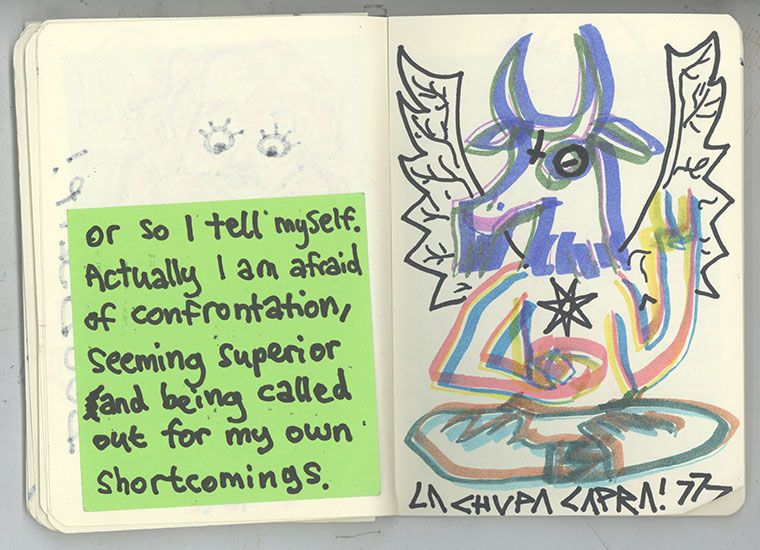 or so I tell myself.
Actually I am afraid
of confrontation,
seeming superior
and being called
out for my own
shortcomings.
LA CHUPA CAPRA!